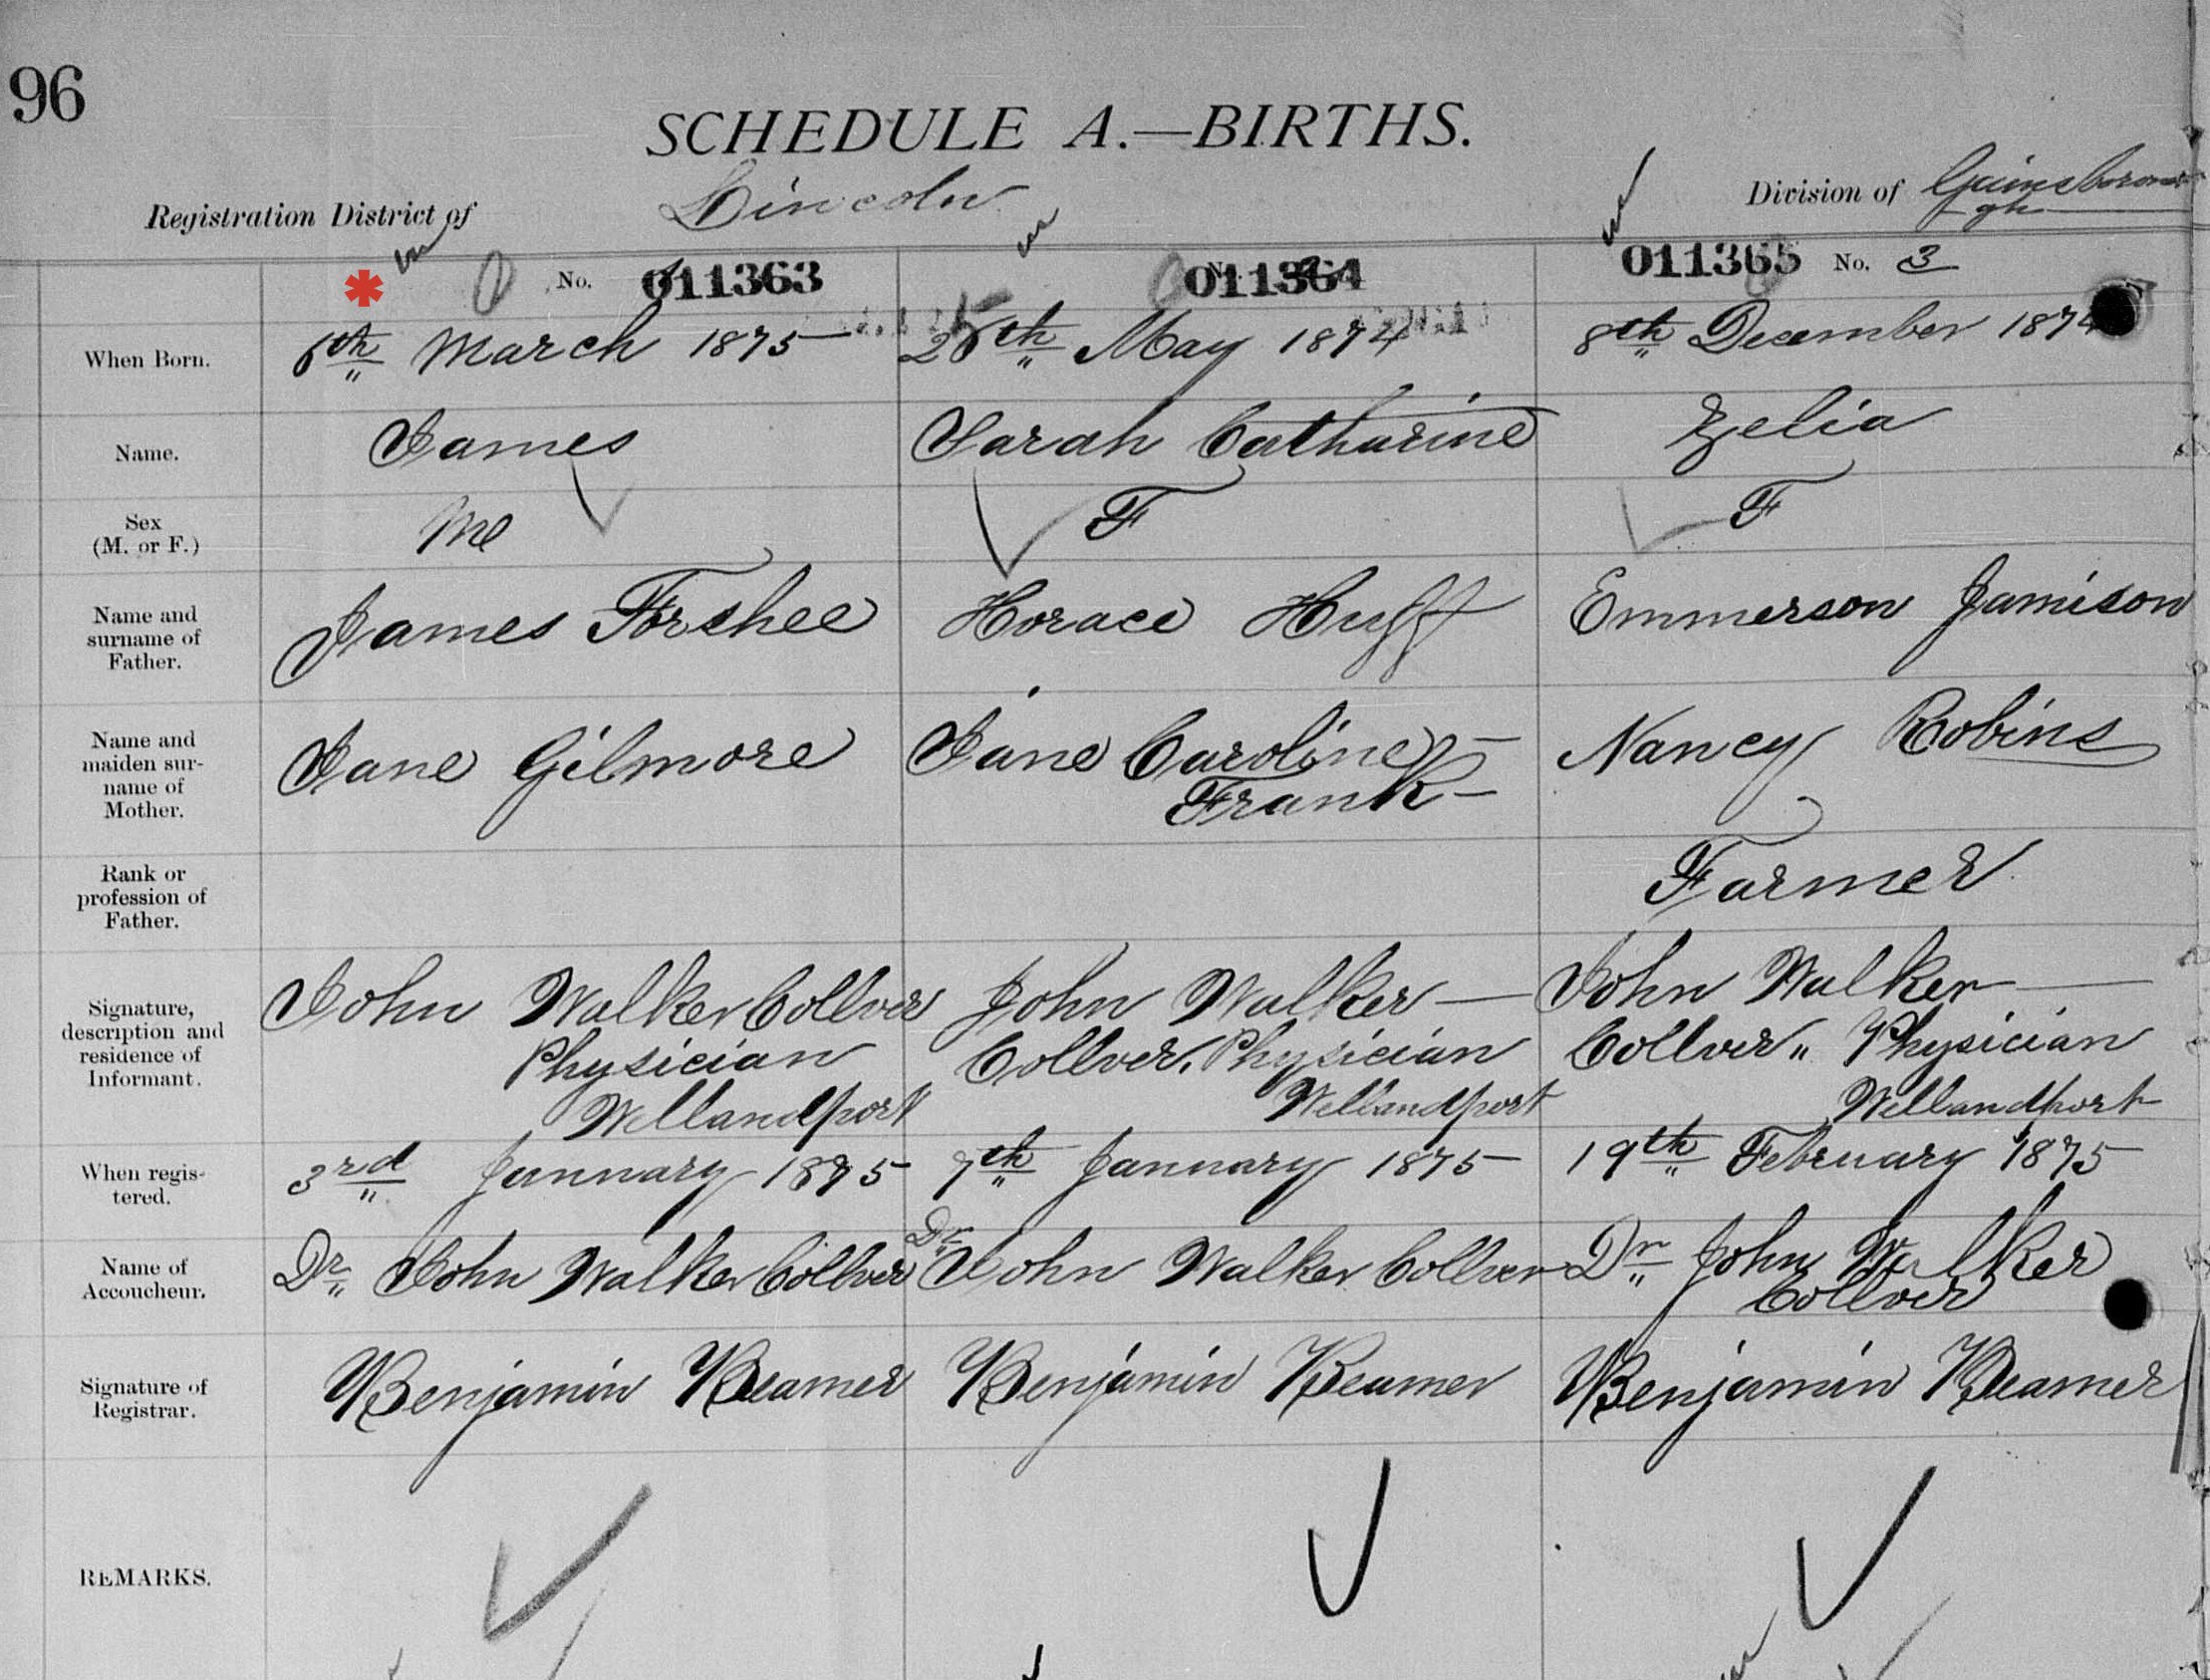 96
SCHEDULE A.—BIRTHS.
Registration District of Lincoln
Division of Gainsborou
gh
No. 011363
011364
011365 No. 3
When Born.
6th March 1875
26th May 1874
8th December 1874
Name.
James
Sarah Catharine
Zelia
Sex
(M. or F.)
Me
F
F
Name and
surname of
Father.
James Forshee
Horace Huff
Emmerson Jamison
Name and
maiden sur-
name of
Mother.
Jane Gilmore
Jane Caroline
Frank
Nancy Robins
Rank or
profession of
Father.
Farmer
Signature,
description and
residence of
Informant.
John Walker Collver
Physician
Wellandport
John Walker—
Collver, Physician
Wellandport
John Walker—
Collver,, Physician
Wellandport
When regis-
tered.
3rd January 1875
7th January 1875
19th February 1875
Name of
Accoucheur.
Dr John Walker Collver
Dr John Walker Collver
Dr John Walker
Collver
Signature of
Registrar.
Benjamin Beamer
Benjamin Beamer
Benjamin Beamer
REMARKS.